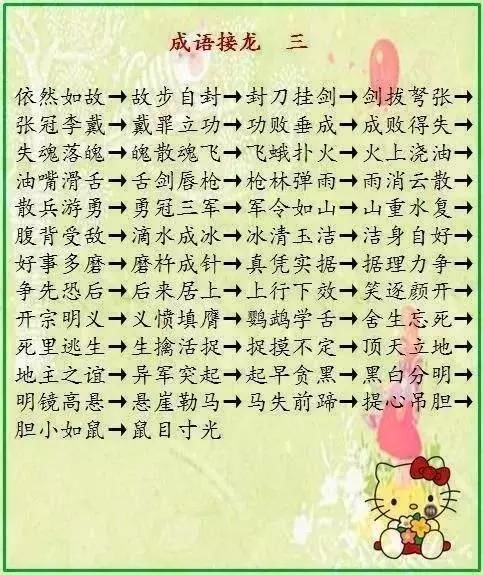 成语接龙 三
依然如故→故步自封→封刀挂剑→剑拔弩张→
张冠李戴→戴罪立功→功败垂成→成败得失→
失魂落魄→魄散魂飞→飞蛾扑火→火上浇油→
油嘴滑舌→舌剑唇枪→枪林弹雨→雨消云散→
散兵游勇→勇冠三军→军令如山→山重水复→
腹背受敌→滴水成冰→冰清玉洁→洁身自好→
好事多磨→磨杵成针→真凭实据→据理力争→
争先恐后→后来居上→上行下效→笑逐颜开→
开宗明义→义愤填膺→鹦鹉学舌→舍生忘死→
死里逃生→生擒活捉→捉摸不定→顶天立地→
地主之谊→异军突起→起早贪黑→黑白分明→
明镜高悬→悬崖勒马→马失前蹄→提心吊胆→
胆小如鼠→鼠目寸光